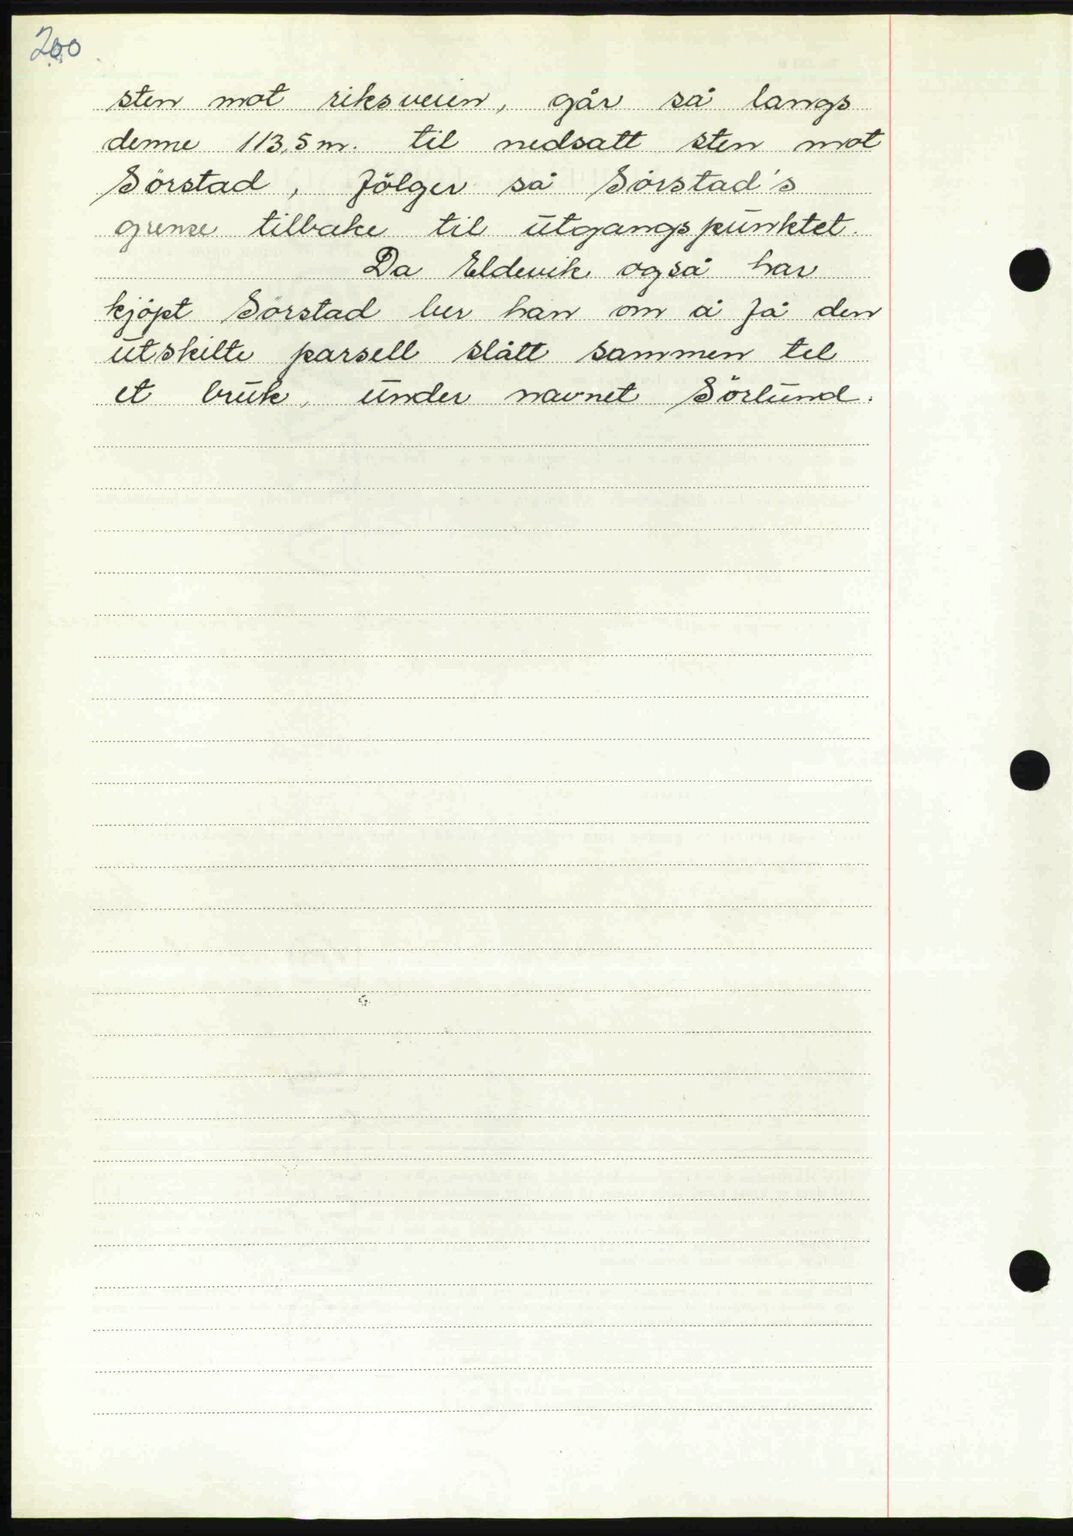 200
sten mot riksveien, går så langs
denne 113,5 m. til nedsatt sten mot
Sörstad, fölger så Sörstad's
grense tilbake til utgangspunktet.
Da Eldevik også har
kjöpt Sörstad ber han om å få den
utskilte parsell slått sammen til
et bruk, under navnet Sörlund.